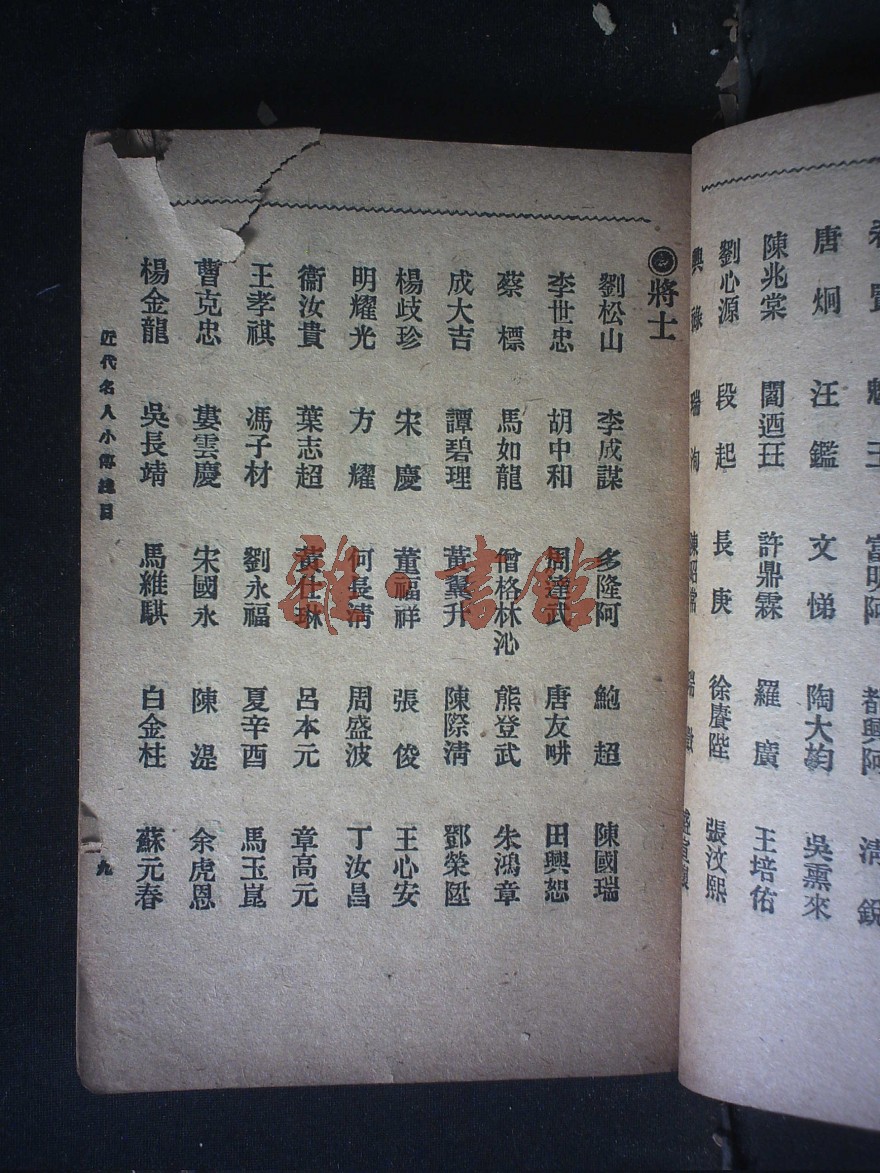 唐烱 汪鑑 文悌 陶大均 吳熏來
陳兆棠 閻迺玨 許鼎霖 羅廣 王培佑
劉心源 段起 長庚 徐賡陛 張汶熙
將士
劉松山 李成謀 多隆阿 鮑超 陳國瑞
李世忠 胡中和 周達武 唐友畊 田興恕
蔡標 馬如龍 僧格林沁 熊登武 朱鴻章
成大吉 譚碧理 黃翼升 陳際淸 鄧榮陞
楊歧珍 宋慶 董福祥 張俊 王心安
明耀光 方耀 何長淸 周盛波 丁汝昌
衞汝貴 葉志超 黃仕琳 呂本元 章高元
王孝祺 馮子材 劉永福 夏辛酉 馬玉崑
曹克忠 婁雲慶 宋國永 陳湜 余虎恩
楊金龍 吳長靖 馬維騏 白金柱 蘇元春
近代名人小傳總目
一九
雜·書館